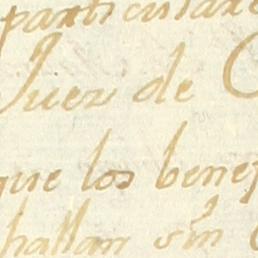 particulare
Juez de C
que los benef
hallan sin